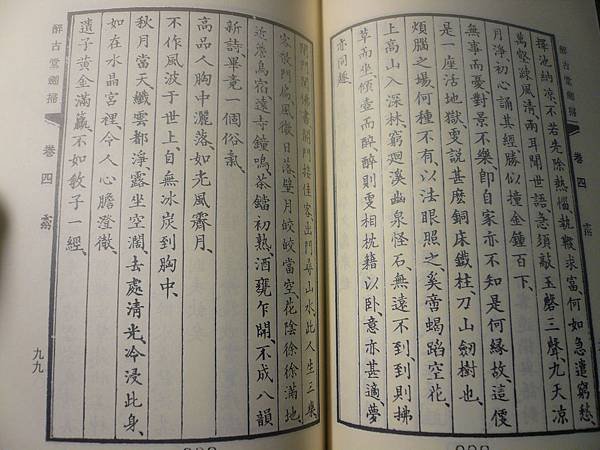 醉古堂劍掃
卷四
擇池納涼、不若先除熱惱、執鞭求富、何如急遣窮愁、
萬壑疎風清、兩耳聞世語、急須敲玉磬三聲、九天涼
月淨、初心誦其經、勝似撞金鐘百下、
無事而憂、對景不樂、即自家亦不知是何緣故、這便
是一座活地獄、更說甚麼銅床鐵柱、刀山劍樹也、
煩惱之場、何種不有、以法眼照之、奚啻蝎蹈空花、
上高山、入深林、窮迴溪、幽泉怪石、無遠不到、到則拂
草而坐、傾壺而醉、醉則更相枕藉以臥、意亦甚適、夢
亦同趣、
閉門閱佛書、開門接佳客、出門尋山水、此人生三樂、
客散門扃、風微日落、碧月皎皎當空、花陰徐徐滿地、
近簷鳥宿、遠寺鐘鳴、茶鐺初熟、酒甕乍開、不成八韻
新詩、畢竟一個俗氣、
高品人胸中灑落、如光風霽月、
不作風波于世上、自無冰炭到胸中、
秋月當天、纖雲都淨、露坐空濶、去處清光冷浸此身、
如在水晶宮裡、令人心膽澄徹、
遺子黃金滿籯、不如教子一經、
醉古堂劍掃
卷四
九九